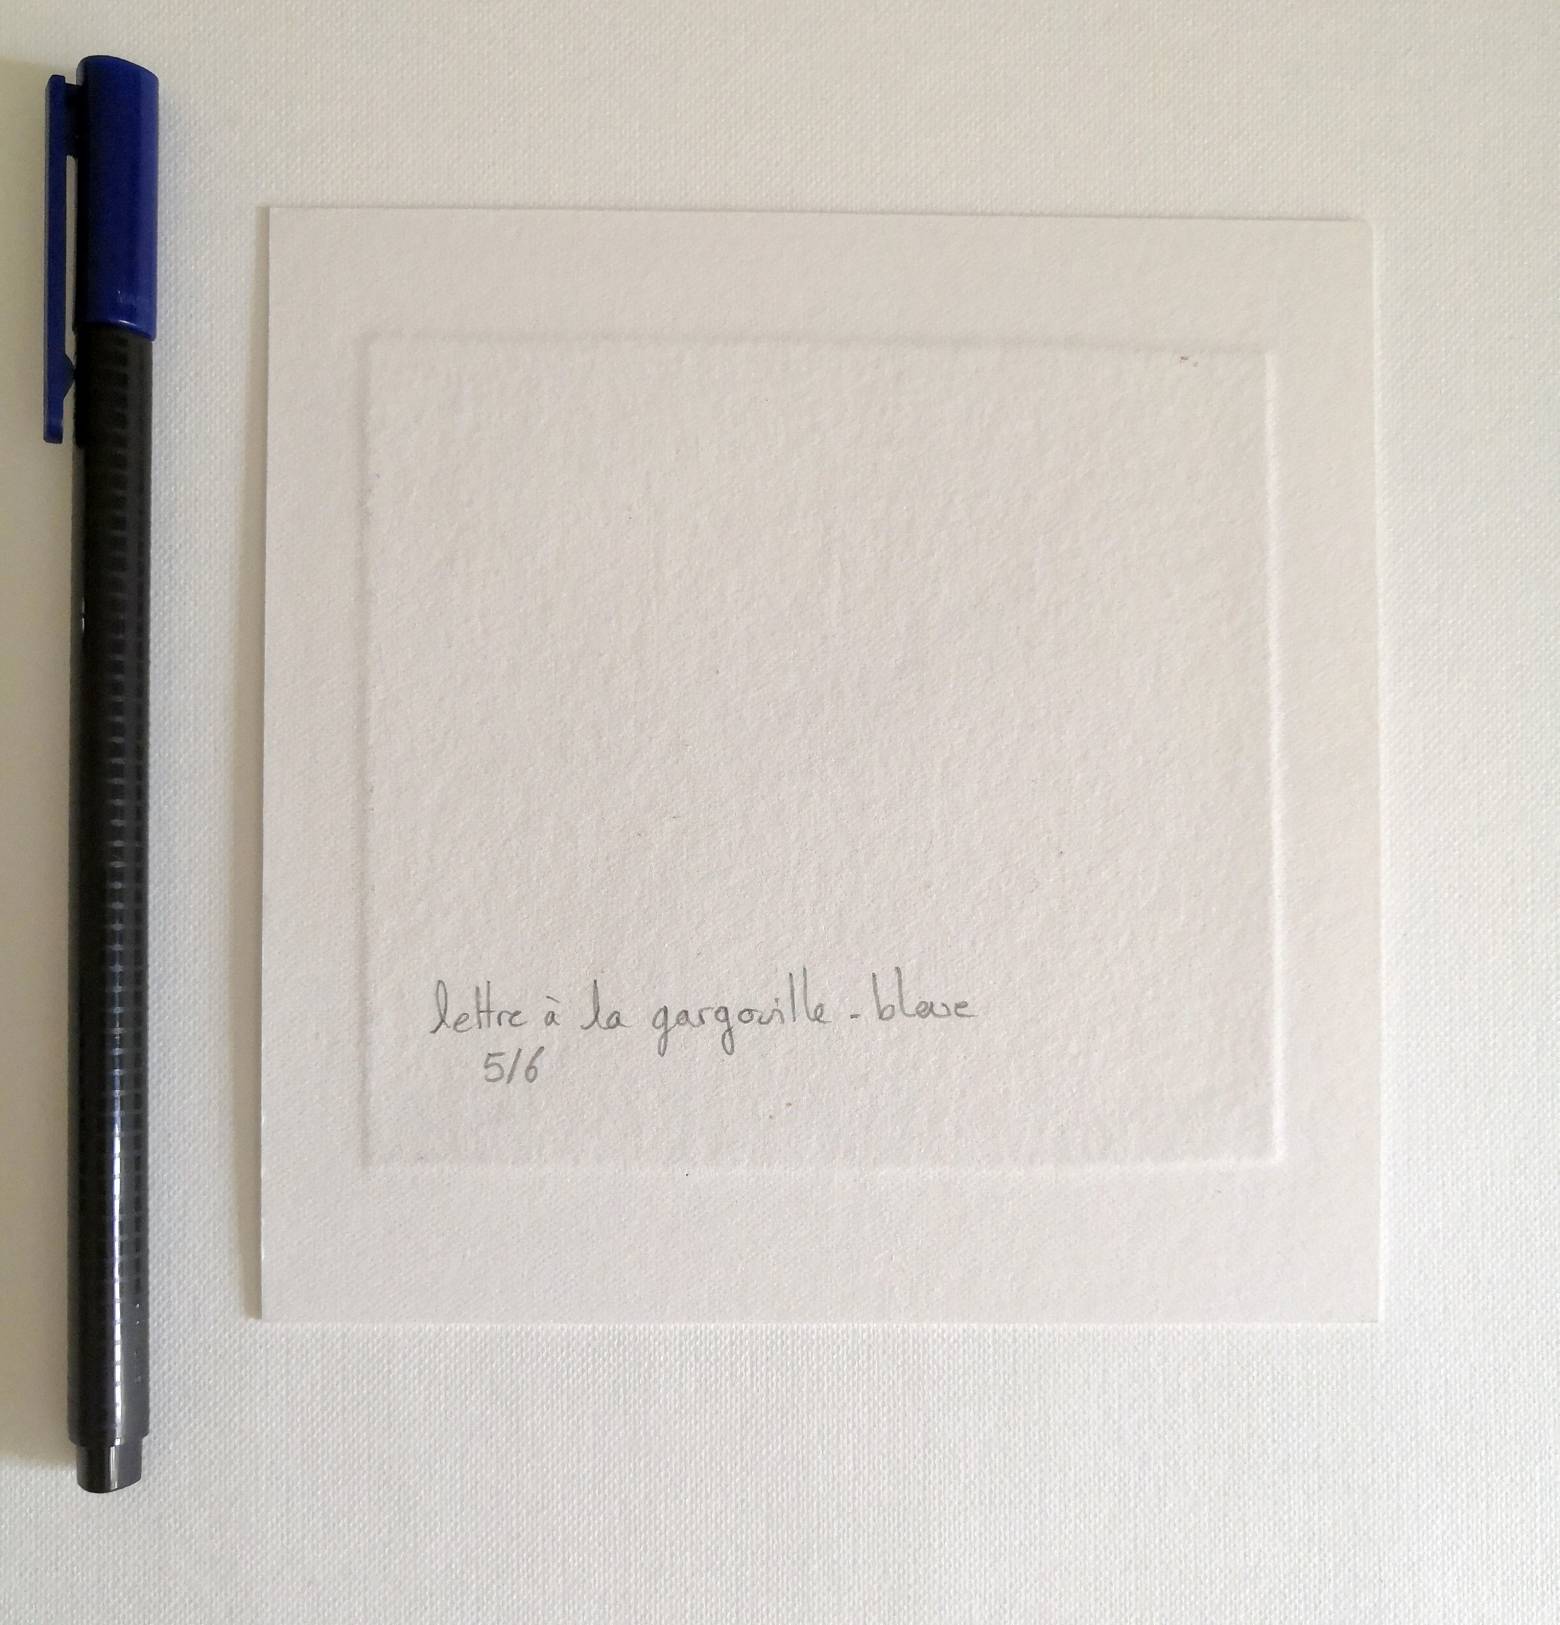 lettre à la gargouille - bleue
5/6